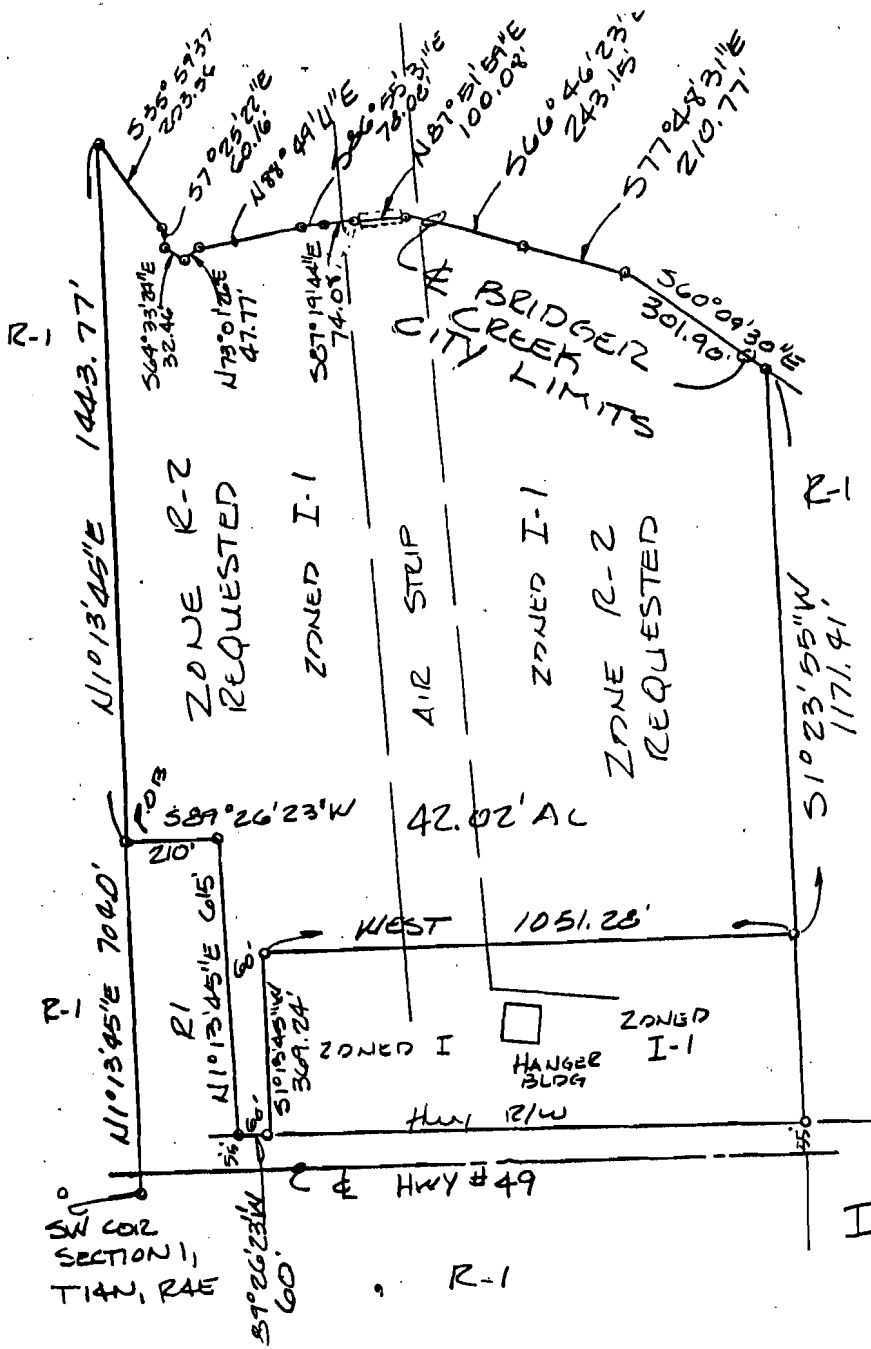 S35°59'37"
203.36
S7°25'22"E
60.16'
N88°49'11"E
S86°55'31"E
78.08'
N87°51'59"E
100.08'
S66°46'23"E
243.15'
S77°48'31"E
210.77'
S60°09'30"E
301.90'
S64°33'24"E
32.46'
N73°01'26"E
47.77'
S87°19'44"E
74.08'
℄ BRIDGER
CREEK
CITY LIMITS
R-1
1443.77'
N1°13'45"E
ZONE R-2
REQUESTED
ZONED I-1
AIR STRIP
ZONED I-1
ZONE R-2
REQUESTED
R-1
S1°23'55"W
1171.41'
P.O.B
S89°26'23"W
210'
42.02' AC
N1°13'45"E 704.0'
R-1
R1
N1°13'45"E 615'
60'
WEST 1051.28'
S1°13'45"W
369.24'
ZONED I
HANGER
BLDG
ZONED
I-1
60'
55'
Hwy R/W
55'
℄ HWY #49
SW COR
SECTION 1,
T1AN, R4E
S89°26'23"W
60'
R-1
I